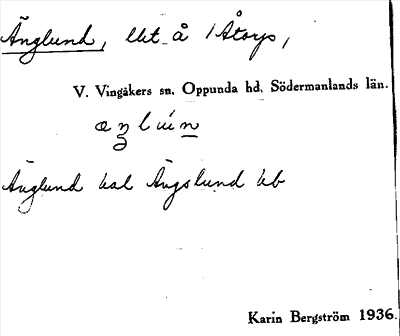 Änglund, lht å Åtorp,
V. Vingåkers sn. Oppunda hd. Södermanlands län.
Änglund kal Ängslund kb
Karin Bergström 1936.